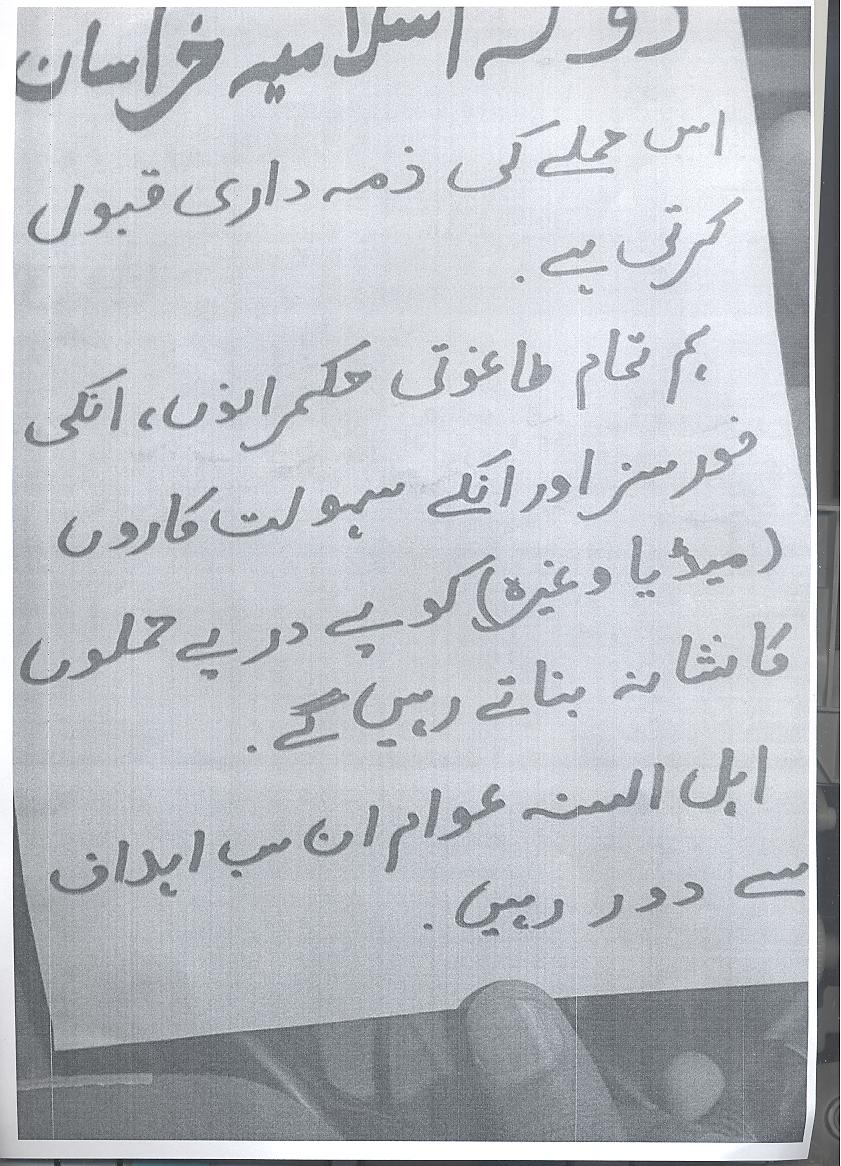 دولہ اسلامیہ خراسان
اس حملے کی ذمہ داری قبول
کرتی ہے .
ہم تمام طاغوتی حکمرانوں، انکی
فورسز اور انکے سہولت کاروں
(میڈیا وغیرہ) کو پے در پے حملوں
کا نشانہ بناتے رہیں گے .
اہل السنہ عوام ان سب اہداف
سے دور رہیں .